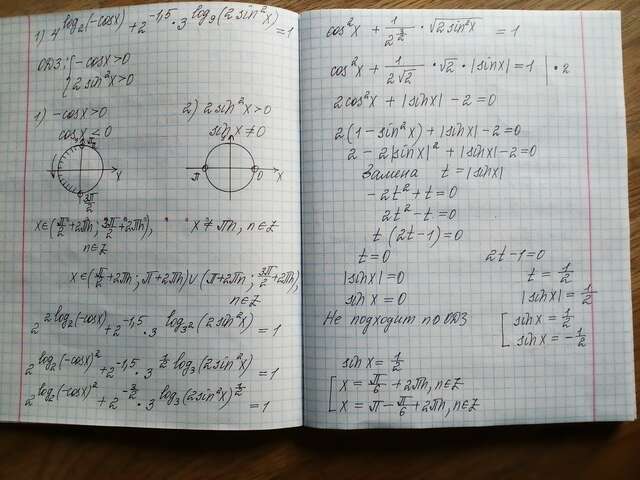 1) 4^(log₂(-cosx)) + 2^(-1,5) · 3^(log₉(2sin²x)) = 1
ОДЗ: { -cosx>0
{ 2sin²x>0
1) -cosx>0
cosx<0
π/2
x
3π/2
x∈(π/2+2πn; 3π/2+2πn),
n∈Z
2) 2sin²x>0
sinx≠0
π 0 x
x≠πn, n∈Z
x∈(π/2+2πn; π+2πn)∪(π+2πn; 3π/2+2πn),
n∈Z
2^(2log₂(-cosx)) + 2^(-1,5) · 3^(log_3²(2sin²x)) = 1
2^(log₂(-cosx)²) + 2^(-1,5) · 3^(½log₃(2sin²x)) = 1
2^(log₂(-cosx)²) + 2^(-3/2) · 3^(log₃(2sin²x)^½) = 1
cos²x + 1/2^(3/2) · √2sin²x = 1
cos²x + 1/(2√2) · √2 · |sinx| = 1 | · 2
2cos²x + |sinx| - 2 = 0
2(1 - sin²x) + |sinx| - 2 = 0
2 - 2|sinx|² + |sinx| - 2 = 0
Замена t = |sinx|
-2t² + t = 0
2t² - t = 0
t(2t-1) = 0
t = 0
|sinx| = 0
sinx = 0
Не подходит по ОДЗ
2t-1=0
t = 1/2
|sinx| = 1/2
[ sinx = 1/2
[ sinx = -1/2
sinx = 1/2
[ x = π/6 + 2πn, n∈Z
[ x = π - π/6 + 2πn, n∈Z